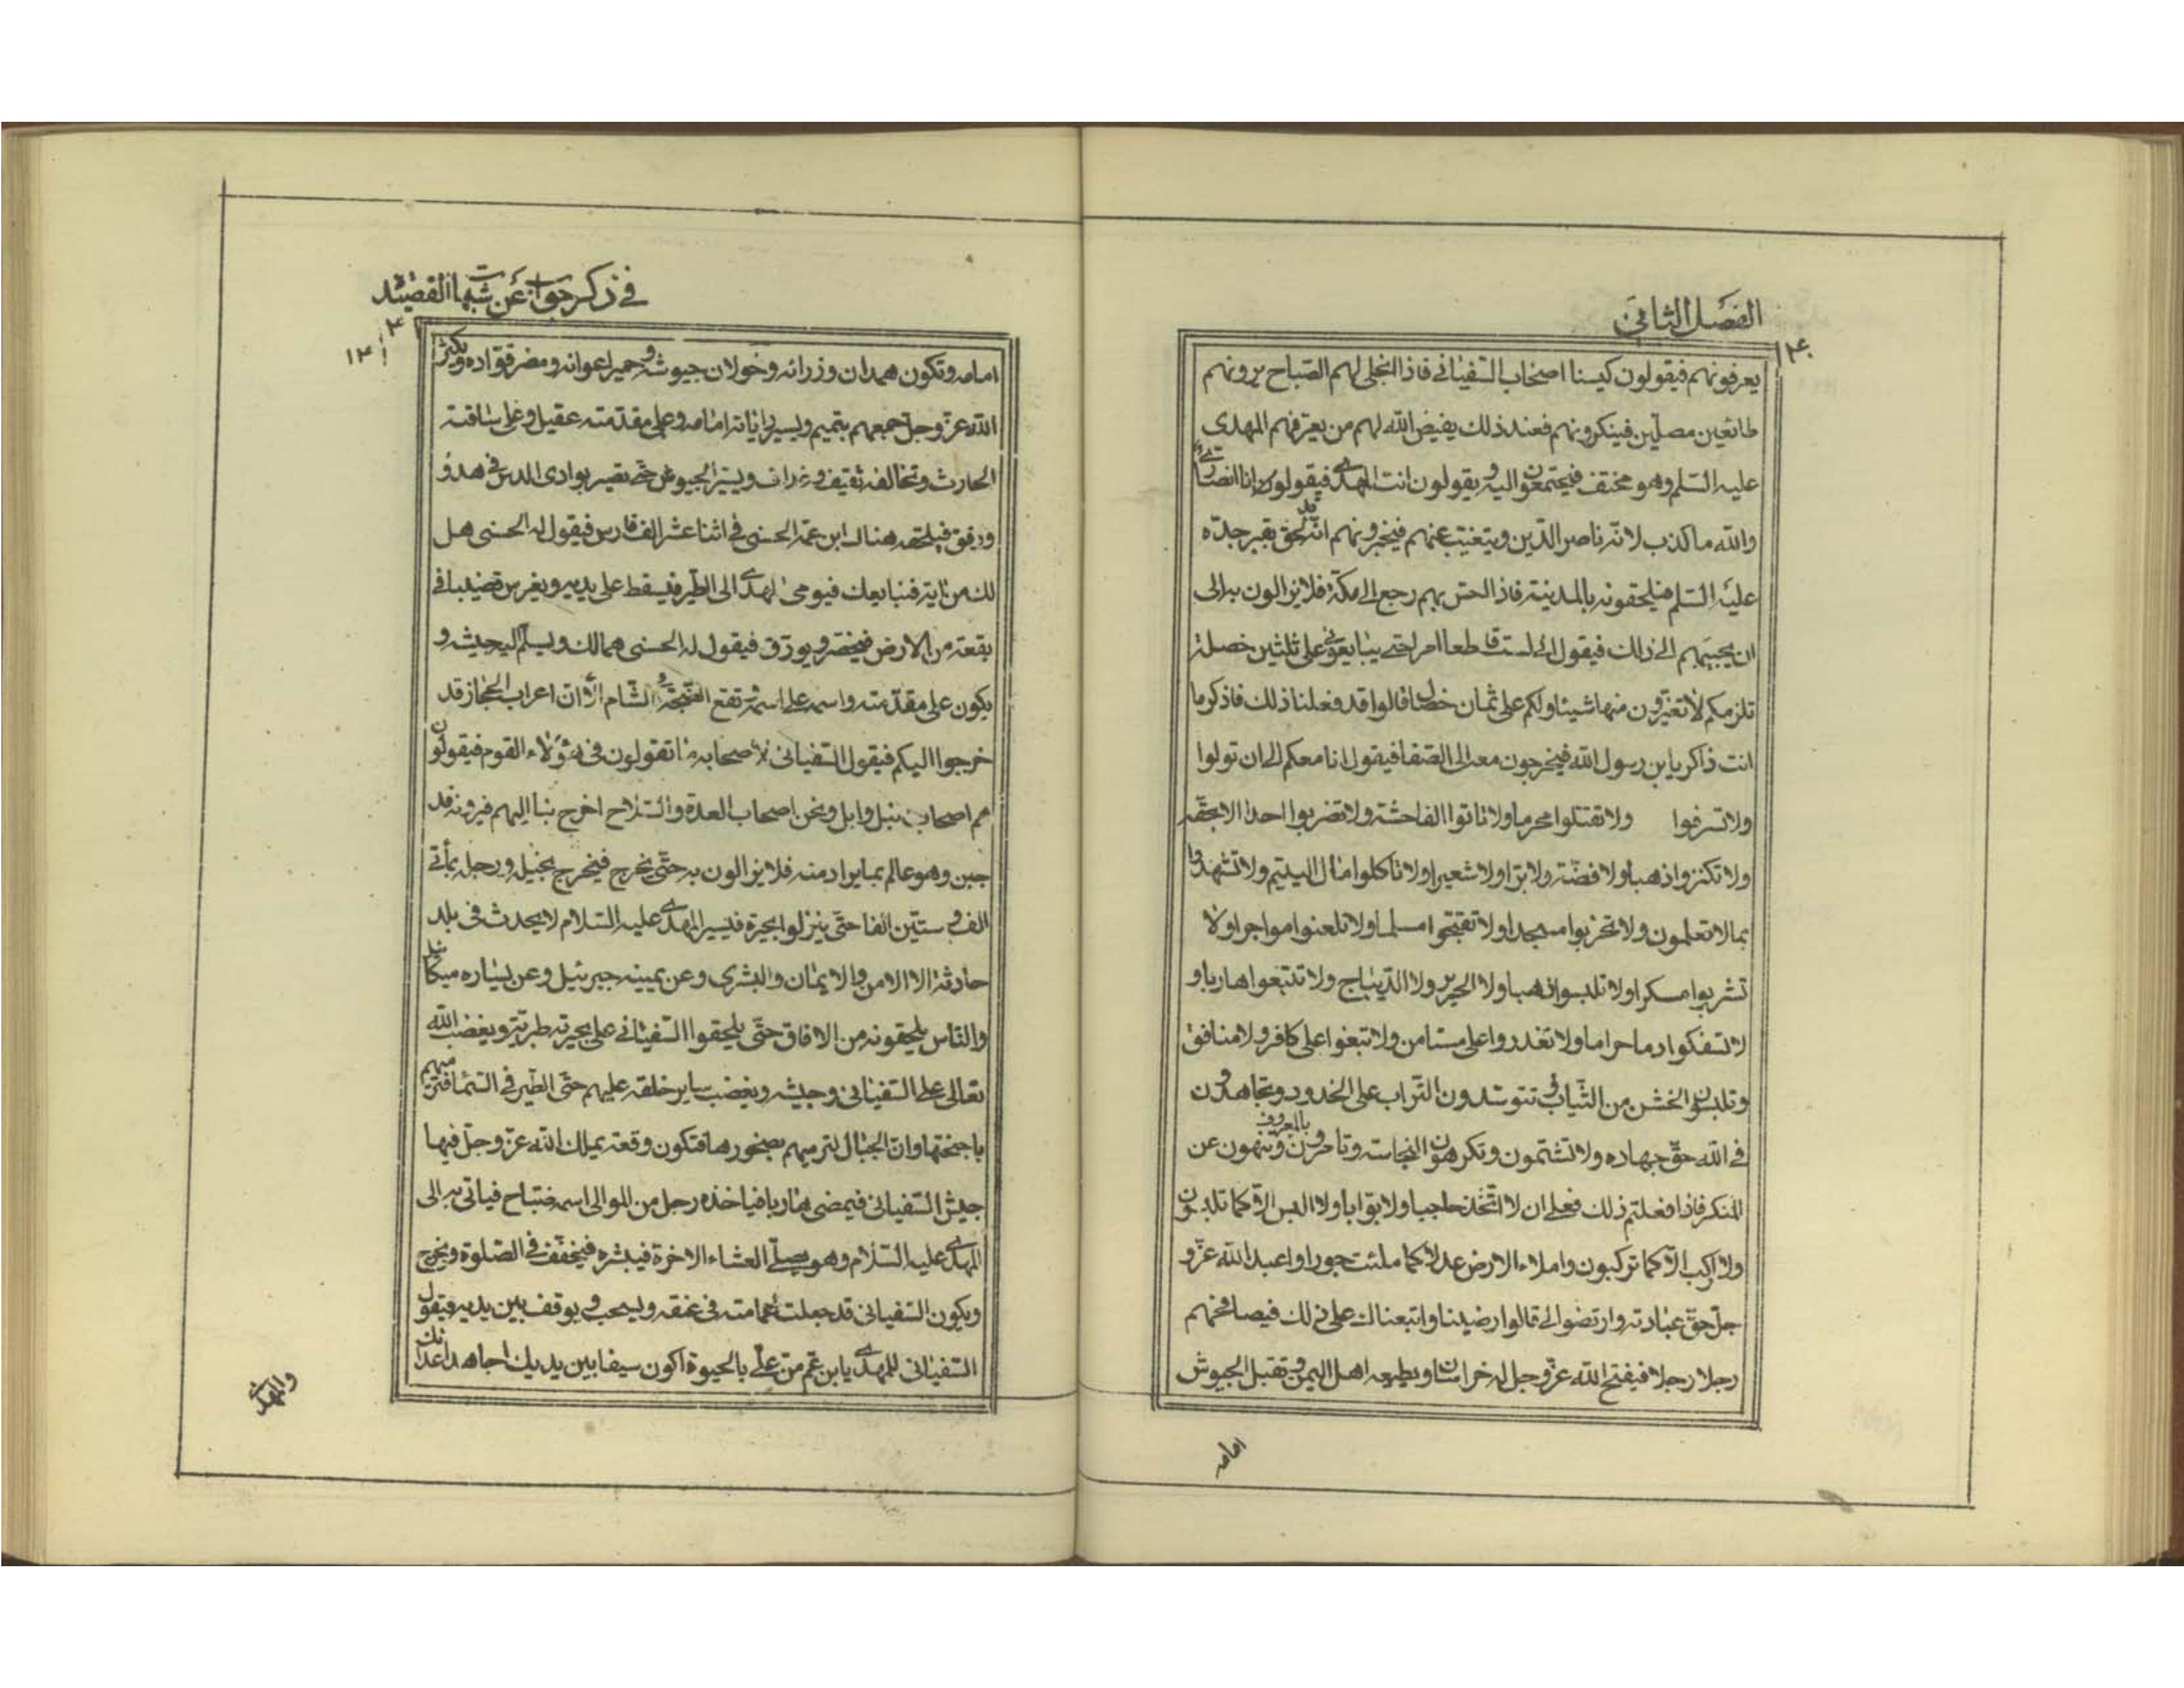 الفصل الثانی
۱۴۰
يعرفونهم فيقولون كبسنا اصحاب السفيانی فاذا انجلی لهم الصباح يرونهم
طائعين مصلين فينكرونهم فعند ذلك يفيض الله لهم من يعرفهم المهدی
عليه السلم وهو مختف فيجتمعون اليه ويقولون انت المهدی فيقول انا انصاری
والله ما كذب لانه ناصر الدين ويتغيب عنهم فيخبرونهم انه قد لحق بقبر جده
عليه السلم فيلحقونه بالمدينة فاذا احس بهم رجع الی مكة فلا يزالون به الی
ان يجيبهم الی ذلك فيقول انی لست قاطعا امرا حتی يبايعونی علی ثلثين خصلة
تلزمكم لا تغيرون منها شيئا ولكم علی ثمان خصال قالوا قد فعلنا ذلك فاذكر ما
انت ذاكر يا بن رسول الله فيخرجون معه الی الصفا فيقول انا معكم الی ان تولوا
ولا تسرقوا ولا تقتلوا محرما ولا تاتوا الفاحشة ولا تضربوا احدا الا بحقه
ولا تكنزوا ذهبا ولا فضة ولا برا ولا شعيرا ولا تاكلوا مال اليتيم ولا تشهدوا
بما لا تعلمون ولا تخربوا مسجدا ولا تقبحوا مسلما ولا تلعنوا مواجرا ولا
تشربوا مسكرا ولا تلبسوا ذهبا ولا الحرير ولا الديباج ولا تتبعوا هاربا و
لا تسفكوا دما حراما ولا تغدروا علی مستامن ولا تبغوا علی كافر ولا منافق
وتلبسون الخشن من الثياب وتتوسدون التراب علی الخدود وتجاهدون
فی الله حق جهاده ولا تشتمون وتكرهون النجاسة وتامرون بالمعروف وتنهون عن
المنكر فاذا فعلتم ذلك فعلی ان لا اتخذ حاجبا ولا بوابا ولا البس الا كما تلبسون
ولا اركب الا كما تركبون واملاء الارض عدلا كما ملئت جورا واعبد الله عز و
جل حق عبادته وارتضوا لی قالوا رضينا واتبعناك علی ذلك فيصافحهم
رجلا رجلا فيفتح الله عز وجل له خراسان ويطيعه اهل اليمن وتقبل الجيوش
امامه
فی ذكر جواب عن شبهات القصيدة
۱۴۱
امامه وتكون همدان وزرائه وخولان جيوشه وحمير اعوانه ومضر قواده ويكثر
الله عز وجل جمعهم بتميم ويسير راياته امامه وعلی مقدمته عقيل وعلی ساقته
الحارث وتخالفه ثقيف وغداف ويسير الجيوش حتی تصير بوادی الدس فی هدؤ
ورفق فيلحقه هناك ابن عمه الحسنی فی اثنا عشر الف فارس فيقول له الحسنی هل
لك من اية فنبايعك فيومی المهدی الی الطير فيسقط علی يديه ويغرس قضيبا فی
بقعة من الارض فيخضر ويورق فيقول له الحسنی هی لك ويسلم اليه جيشه و
يكون علی مقدمته واسمه علی اسمه وتقع الضجة الشام الا ان اعراب الحجاز قد
خرجوا اليكم فيقول السفيانی لاصحابه ما تقولون فی هؤلاء القوم فيقولون
هم اصحاب نبل وابل ونحن اصحاب العدة والسلاح اخرج بنا اليهم فيرونه قد
جبن وهو عالم بما يراد منه فلا يزالون به حتی يخرج فيخرج بخيله ورجله بمأتی
الف وستين الفا حتی ينزلوا بحيرة فيسير المهدی عليه السلام لا يحدث فی بلد
حادثة الا الامن والايمان والبشری وعن يمينه جبرئيل وعن يساره ميكائيل
والناس يلحقونه من الافاق حتی يلحقوا السفيانی علی بحيرة طبرية ويغضب الله
تعالی علی السفيانی وجيشه ويغضب ساير خلقه عليهم حتی الطير فی السماء فترميهم
باجنحتها وان الجبال لترميهم بصخورها فتكون وقعة يهلك الله عز وجل فيها
جيش السفيانی فيمضی هاربا فياخذه رجل من الموالی اسمه صباح فياتی به الی
المهدی عليه السلام وهو يصلی العشاء الاخرة فيبشره فيخفف فی الصلوة ويخرج
ويكون السفيانی قد جعلت عمامته فی عنقه ويسحب ويوقف بين يديه فيقول
السفيانی للمهدی يا بن عم من علی بالحيوة اكون سيفا بين يديك اجاهد اعدائك
والمهدی